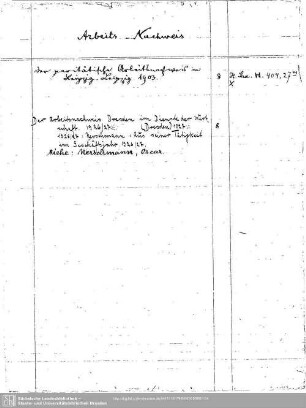 Arbeits - Nachweis
Der paritätische Arbeitsnachweis in
Leipzig. Leipzig 1903.
8 H. Sax. H. 404, 27
Der Arbeitsnachweis Dresden im Dienste der Wirt-
schaft 1926/27. (Dresden) 1927.
8
1926/27: Aus seiner Tätigkeit
im Geschäftsjahr 1926/27.
Siehe: Oscar.
Sächsische Landesbibliothek -
Staats- und Universitätsbibliothek Dresden